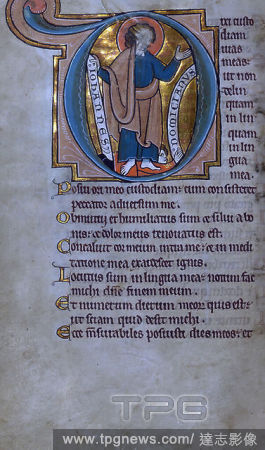 D
ixi custo
diam
uias
meas:
ut non
delin
quam
in lin
gua
mea.
IOHANNES
DOMICIANUS
Posui ori meo custodiam: cum consisteret
peccator aduersum me.
Obmutui et humiliatus sum et silui a bo
nis: et dolor meus renouatus est.
Concaluit cor meum intra me: et in medi
tatione mea exardescet ignis.
Locutus sum in lingua mea: notum fac
michi dne finem meum.
Et numerum dierum meor quis est:
ut sciam quid desit michi.
Ecce mensurabiles posuisti dies meos: et
TPG
www.tpgnews.com/ 達志影像